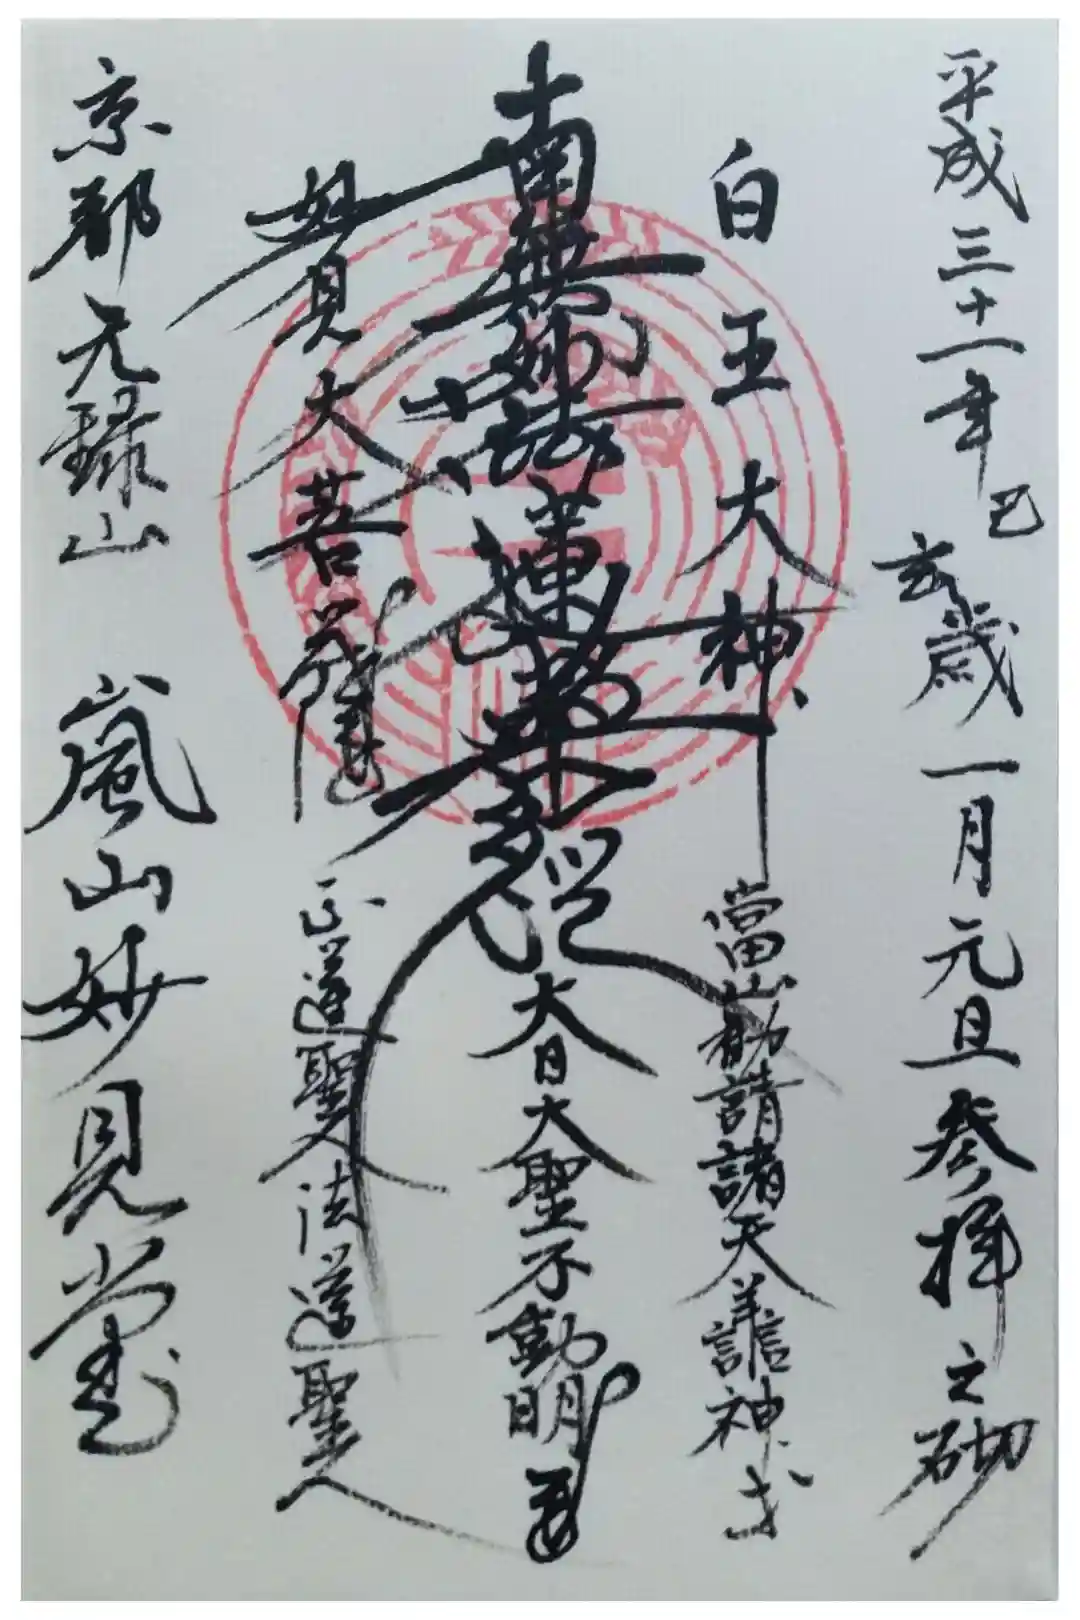 平成三十一年己亥歳一月元旦参拝之砌
白王大神 當山勧請諸天善神
南無妙法蓮華経 大日大聖不動明王
妙見大菩薩 正運聖人法運聖人
京都元録山 嵐山妙見堂